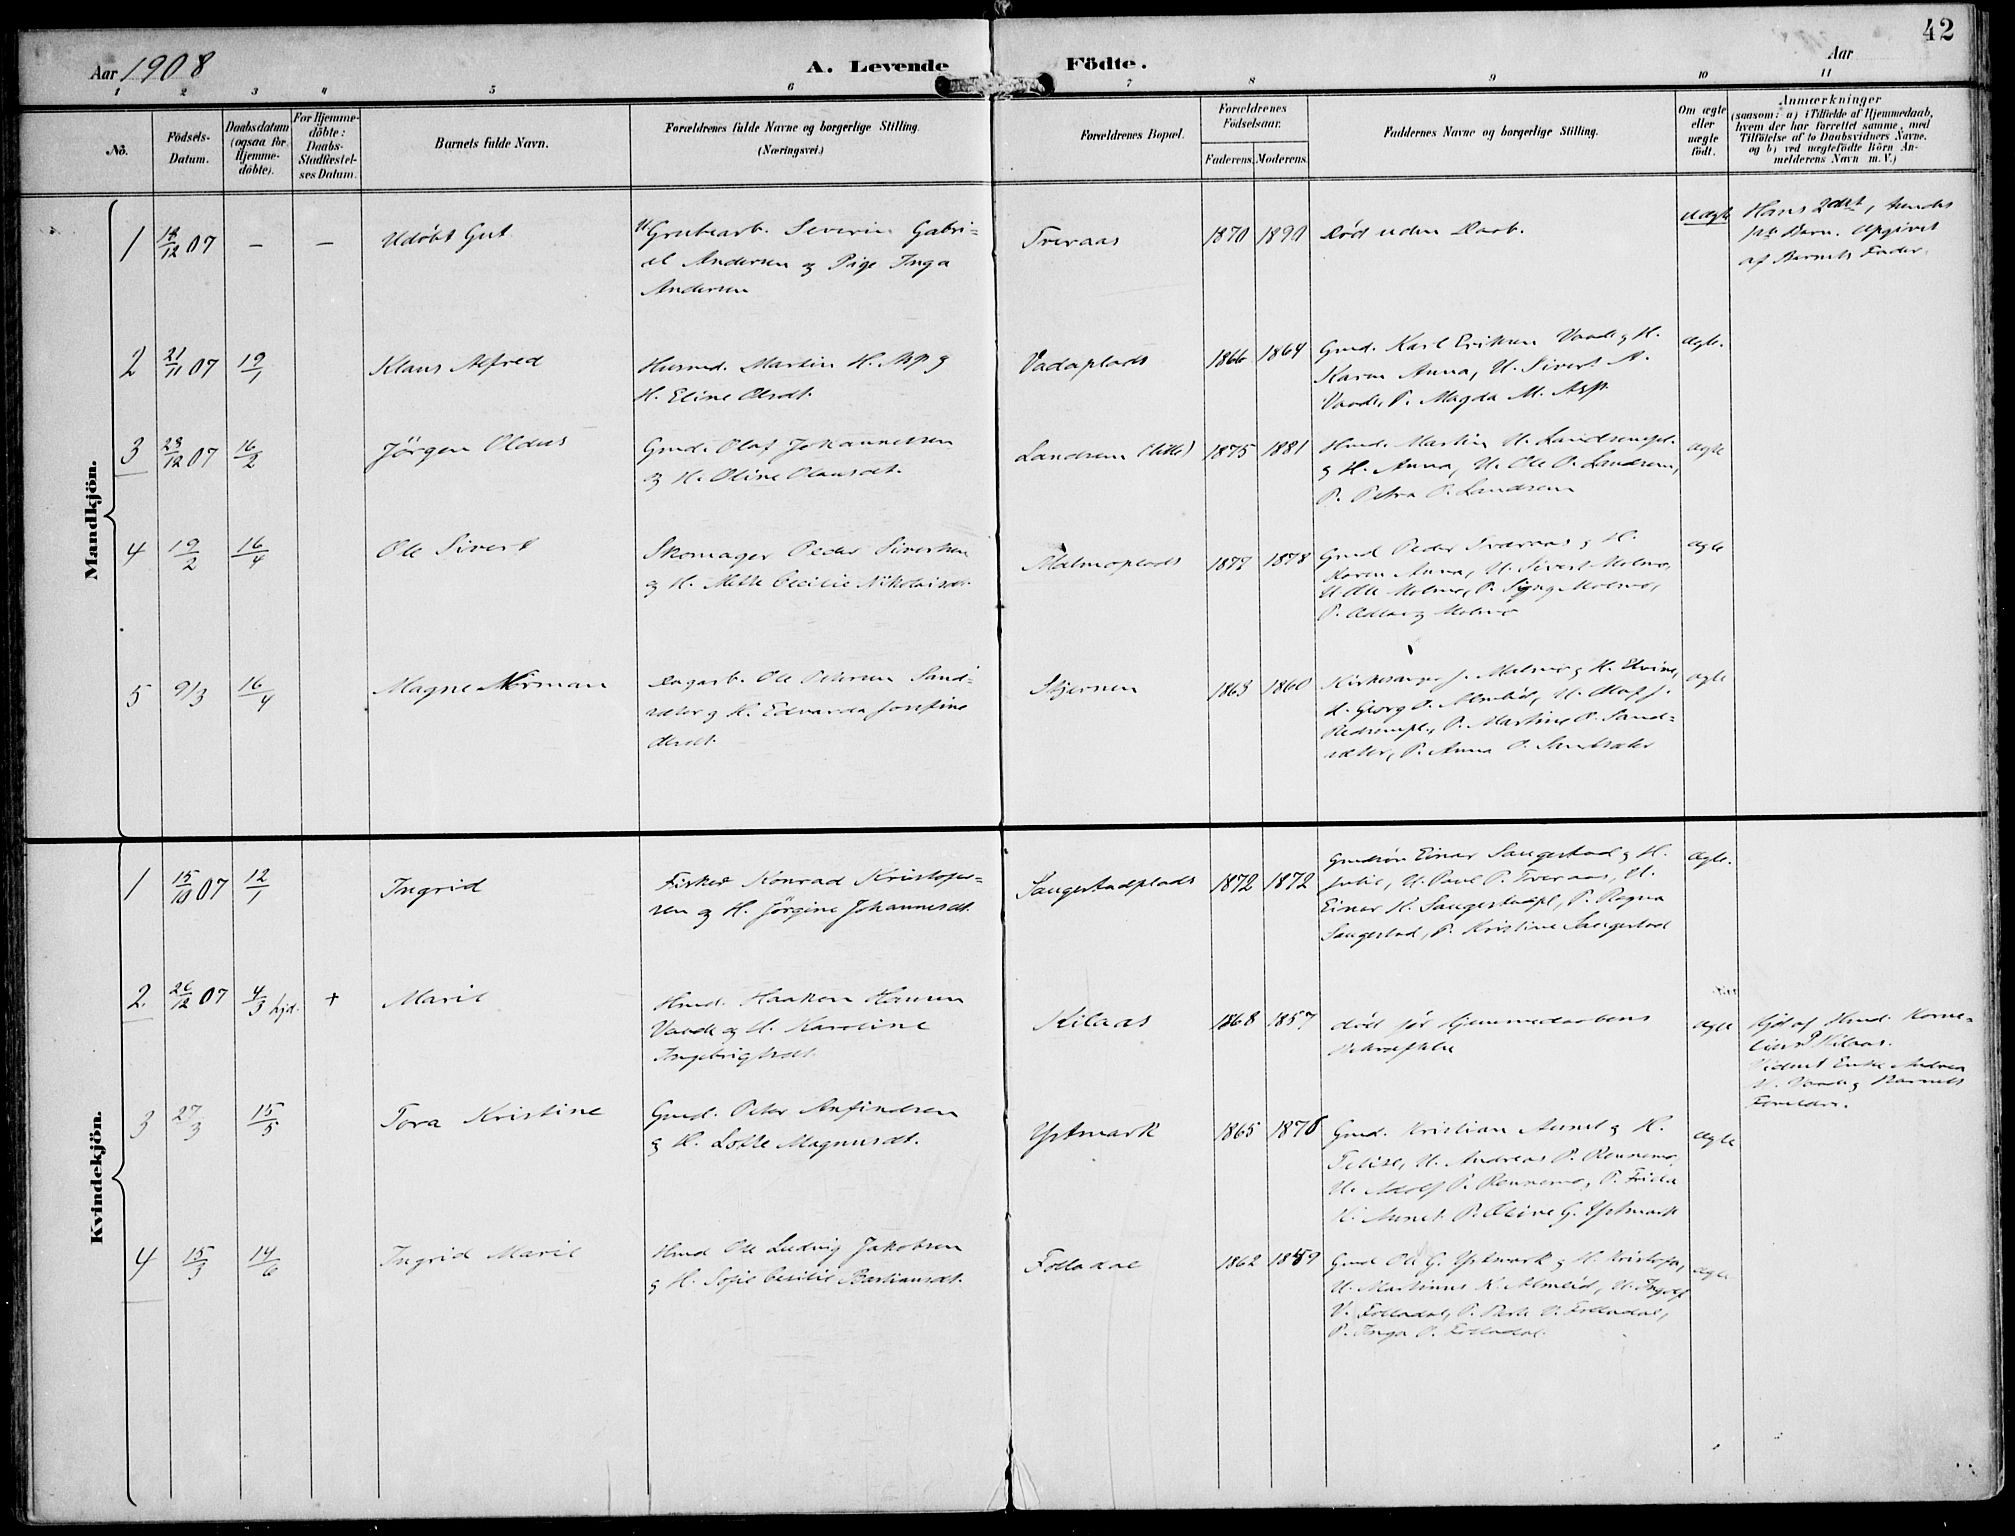 42
Aar 1908
A. Levende Födte.
Aar
1 2 3 4 5 6 7 8 9 10 11
No.
Födsels-Datum.
Daabsdatum (ogsaa for Hjemme-döbte).
For Hjemme-döbte: Daabs-Stadfæstel-ses Datum.
Barnets fulde Navn.
Forældrenes fulde Navne og borgerlige Stilling.
(Næringsvei.)
Forældrenes Bopæl.
Forældrenes Födselsaar.
Faderens. Moderens.
Faddernes Navne og borgerlige Stilling.
Om ægte eller uægte födt.
Anmærkninger
(saasom: a) i Tilfælde af Hjemmedaab,
hvem der har forrettet samme, med
Tilföielse af to Daabsvidners Navne.
og b) ved uægtefödte Börn An-
melderens Navn m. V.)
Mandkjön.
1 18/12 07 – – Udöbt Gut
Grubearb. Severin Gabri-
el Andersen og Pige Inga
Andersen
Treraas 1870 1890 Död uden Daab. Uægte
Hans 2det, hendes
1ste Barn. Opgivet
af Barnets Fader.
2 21/11 07 12/1 Klaus Alfred
Husmd. Martin H. Asp og
H. Eline Olsdt.
Vadaplads 1866 1864
Gmd. Karl Eriksen Vaade og H.
Karen Anna, U. Sivert A.
Vaade, P. Magda M. Asp.
ægte.
3 28/12 07 16/2 Jörgen Oldus
Gmd. Olaf Johannessen
og H. Oline Olausdt.
Landsem (lille) 1875 1881
Hmd. Martin Landsempl.
og H. Anna, U. Ole O. Landsem,
P. Petra P. Landsem
ægte
4 19/2 16/4 Ole Sivert
Skomager Peder Sivertsen
og H. Mette Cecilie Nikolaisdt.
Malmoplads 1878
Gmd Peder Treraas og H.
Karen Anna, U. Sivert Malmo,
U. Ole Malmo, P. Malmo,
P. Malmo
ægte
5 9/3 16/4 Magne Norman
Dagarb. Ole Petersen Sand-
sæter og H. Edvarda Josefine
Olsdt.
Stjernen 1863 1860
Kirkesanger J. Malmo og H. Elvine,
U. Georg P. Almlid, U. Olaf J.
P. Martine P. Sand-
sæter, P. Anna P. Sandsæter
ægte
Kvindekjön.
1 15/10 07 12/1 Ingrid
Fisker Konrad Kristofer-
sen og H. Jörgine Johannesdt.
Saugestadplads 1872 1872
Gmdsön Einar Saugestad og H.
Julie, U. Paul P. Treraas, U.
Einar K. Saugestadpl., P. Ragna
Saugestad, P. Kristine Saugestad
ægte.
2. 26/12 07 4/3 hjd. + Marie
Hmd. Haakon Hansen
Vaade og H. Karoline
Ingebrigtsdt.
Kilaas 1868 1857
död för Hjemmedaabens
Bekræftelse
ægte
Hjd af Hmd. Korne-
lius Kilaas.
Vidner Enke Andrea
Vaade og Barnets
Forældre.
3 27/3 15/5 Tora Kristine
Gmd. Peter Anfindsen
og H. Lotte Magnusdt.
Ystmark 1865 1876
Gmd. Kristian Aunet og H.
Felise, U. Andreas P. Rennemo,
U. Adolf P. Rennemo, P. Frida
K. Aunet. P. Oline G. Ystmark
ægte
4 15/3 14/6 Ingrid Marie
Hmd Ole Ludvig Jakobsen
og H. Sofie Cecilie Bastiansdt.
Folladal 1862 1859
Gmd Ole G. Ystmark og H. Kristofa,
U. Martinus K. Almlid, U. Ingolf
V. Folladal, P. P. Folladal,
P. Inga O. Folladal.
ægte